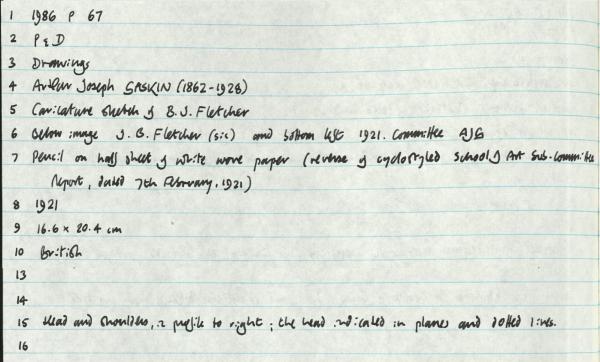 1 1986 P 67
2 P & D
3 Drawings
4 Arthur Joseph GASKIN (1862-1928)
5 Caricature sketch of B.J. Fletcher
6 Below image J.B. Fletcher (sic) and bottom left 1921. Committee AJG
7 Pencil on half sheet of white wove paper (reverse of cyclostyled School of Art Sub-Committee
Report, dated 7th February, 1921)
8 1921
9 16.6 x 20.4 cm
10 British
13
14
15 Head and shoulders, in profile to right; the head indicated in planes and dotted lines.
16